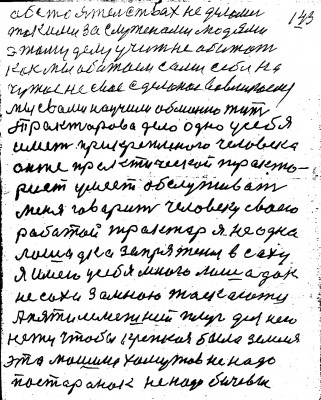 143
обстоятелствах не делоти
такими заслуженами людями
этому делу учит не обижат
как мы обижаем сами себя на
чужое не свое сделоное
мы свами научили обмонно жит
Трактарова дело одно усебя
имет прикрепленого человека
он же практической тракто-
рист умеет обслуживат
меня гаварит человеку своею
работой трактар я не одна
лошадка запряжена в саху
я имею усебя много лошадок
не соха замною таскаюти
А пятилемешней плуг для него
нежу чтобы крепкая была земля
эта машини хомутов не надо
постаранок не надо бичевы